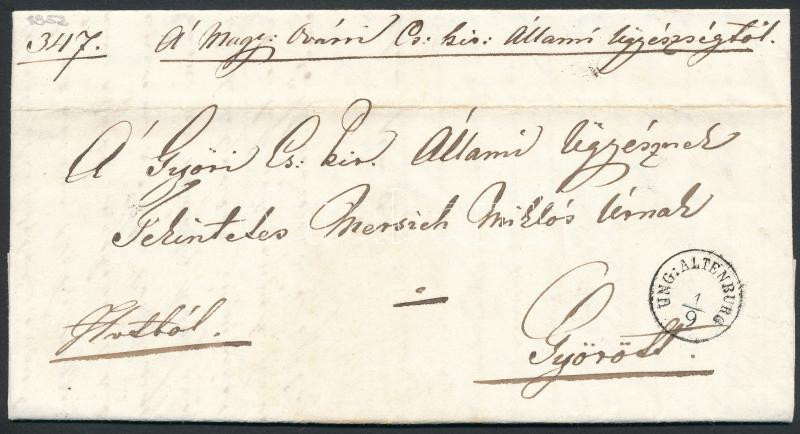 1852
347. A' Magy: Óvári Cs: kir: Állami Ügyészségtől.
A' Győri Cs: kir. Állami Ügyésznek
Tekintetes Mersich Miklós Úrnak
UNG: ALTENBURG
1/9
Hivatból.
Győrött.